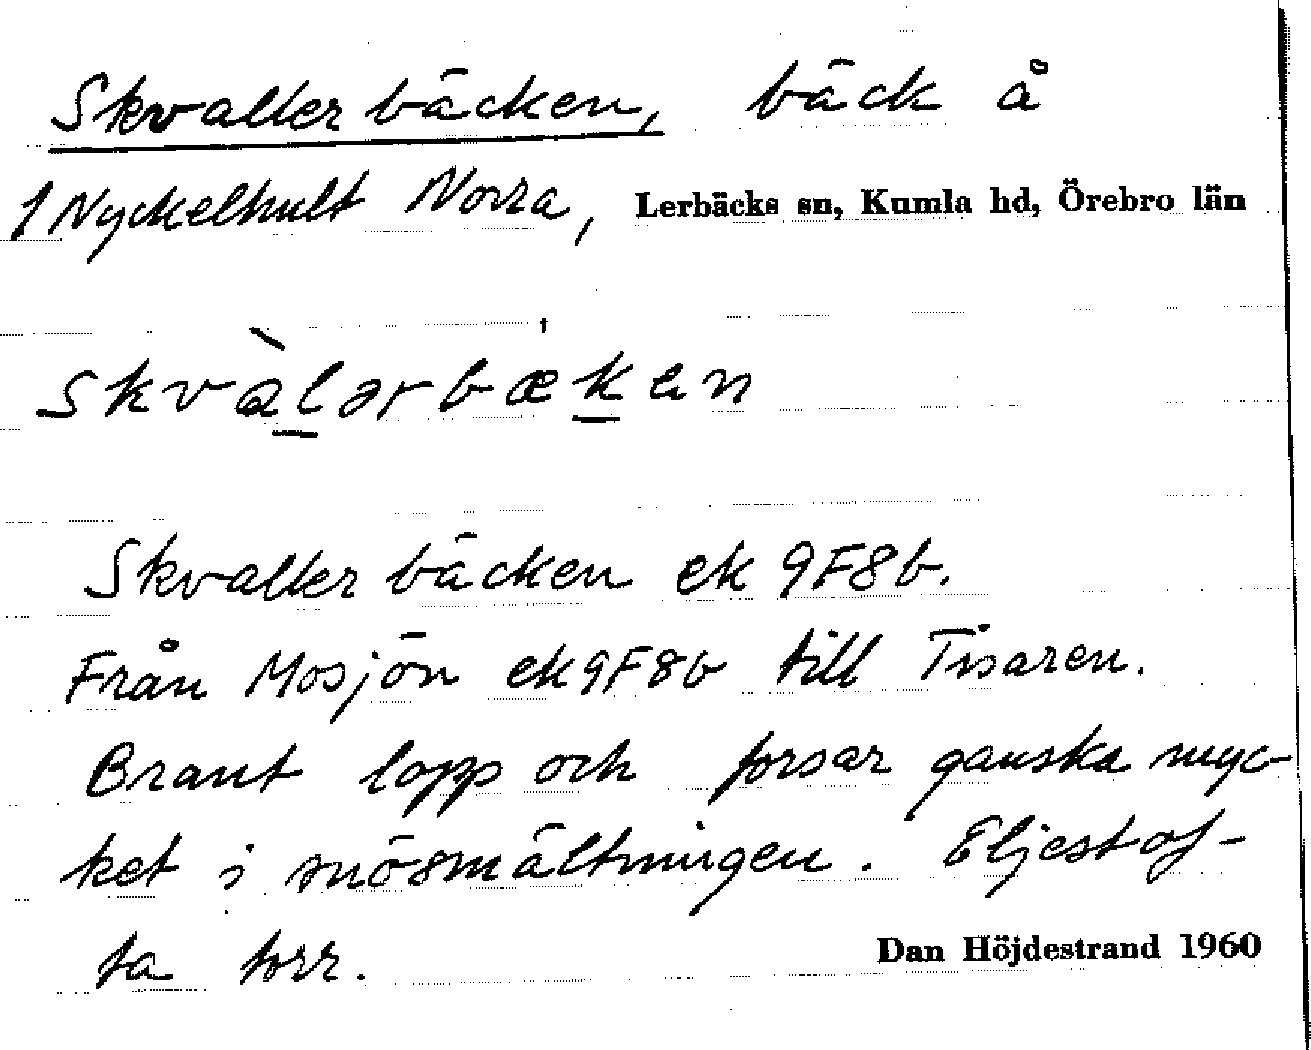 Skvallerbäcken, bäck å
1 Nyckelhult Norra, Lerbäcks sn, Kumla hd, Örebro län
skvàlərbækən
Skvallerbäcken ek 9F8b.
Från Mosjön ek 9F8b till Tisaren.
Brant lopp och forsar ganska myc-
ket i snösmältningen. Eljest of-
ta torr.
Dan Höjdestrand 1960